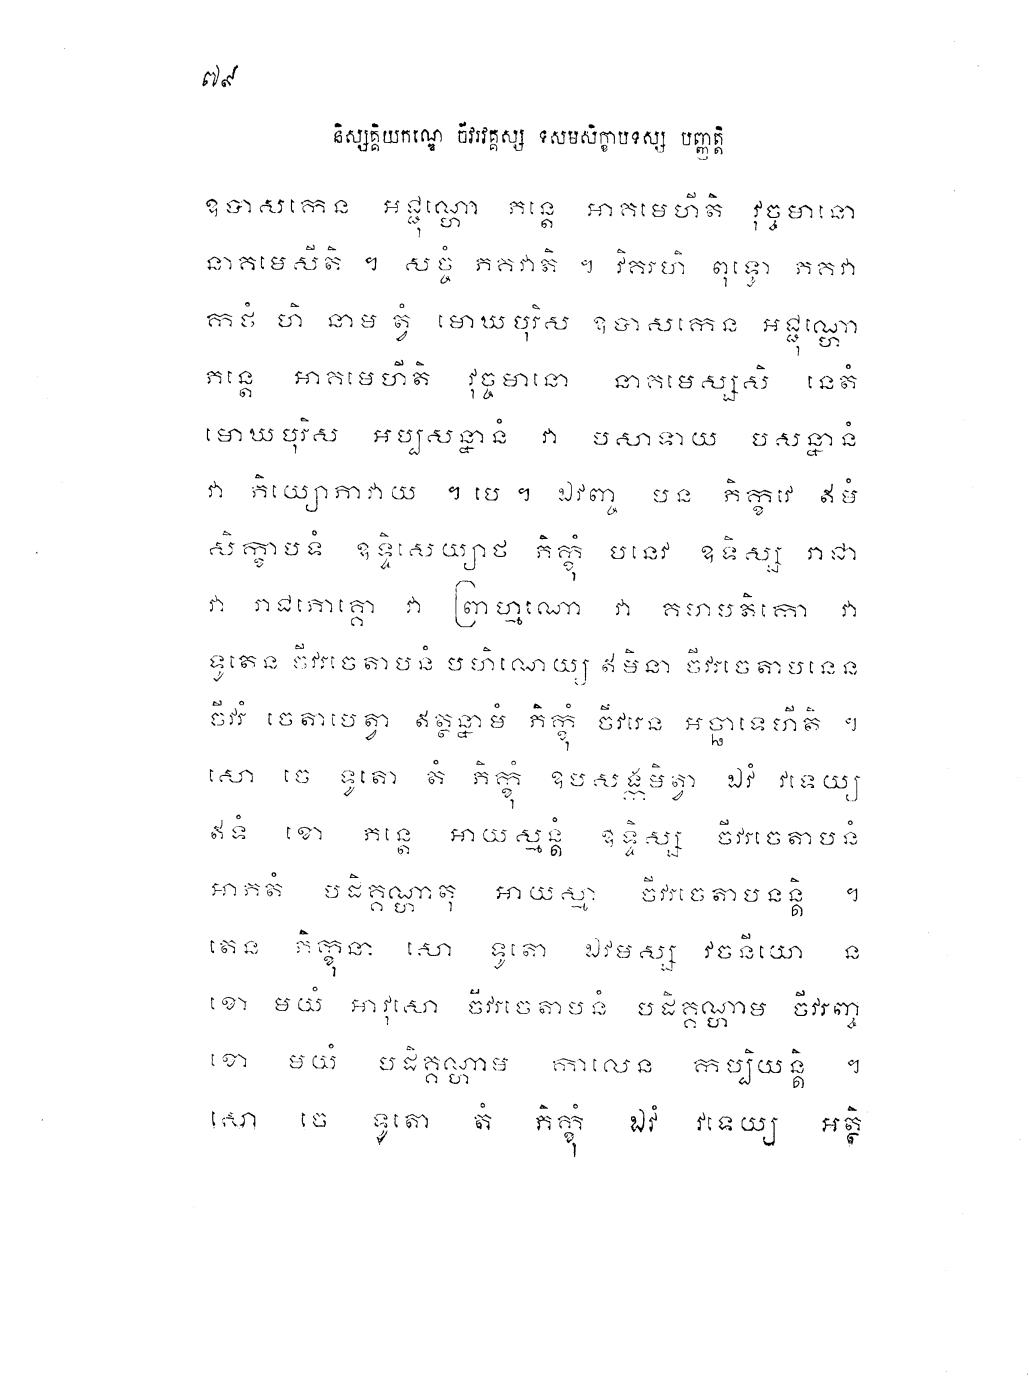 ៧៩
និស្សគ្គិយកណ្ឌេ ចីវរវគ្គស្ស ទសមសិក្ខាបទស្ស បញ្ញត្តិ
ឧបាសកេន អជ្ជុណ្ហោ ភន្តេ អាគមេហីតិ វុច្ចមានោ
នាគមេសីតិ ។ សច្ចំ ភគវាតិ ។ វិគរហិ ពុទ្ធោ ភគវា
កថំ ហិ នាម ត្វំ មោឃបុរិស ឧបាសកេន អជ្ជុណ្ហោ
ភន្តេ អាគមេហីតិ វុច្ចមានោ នាគមេស្សសិ នេតំ
មោឃបុរិស អប្បសន្នានំ វា បសាទាយ បសន្នានំ
វា ភិយ្យោភាវាយ ។ បេ ។ ឯវញ្ច បន ភិក្ខវេ ឥមំ
សិក្ខាបទំ ឧទ្ទិសេយ្យាថ ភិក្ខុំ បនេវ ឧទិស្ស រាជា
វា រាជភោគ្គោ វា ព្រាហ្មណោ វា គហបតិកោ វា
ទូតេន ចីវរចេតាបនំ បហិណេយ្យ ឥមិនា ចីវរចេតាបនេន
ចីវរំ ចេតាបេត្វា ឥត្ថន្នាមំ ភិក្ខុំ ចីវរេន អច្ឆាទេហីតិ ។
សោ ចេ ទូតោ តំ ភិក្ខុំ ឧបសង្កមិត្វា ឯវំ វទេយ្យ
ឥទំ ខោ ភន្តេ អាយស្មន្តំ ឧទ្ទិស្ស ចីវរចេតាបនំ
អាភតំ បដិគ្គណ្ហាតុ អាយស្មា ចីវរចេតាបនន្តិ ។
តេន ភិក្ខុនា សោ ទូតោ ឯវមស្ស វចនីយោ ន
ខោ មយំ អាវុសោ ចីវរចេតាបនំ បដិគ្គណ្ហាម ចីវរញ្ច
ខោ មយំ បដិគ្គណ្ហាម កាលេន កប្បិយន្តិ ។
សោ ចេ ទូតោ តំ ភិក្ខុំ ឯវំ វទេយ្យ អត្ថិ